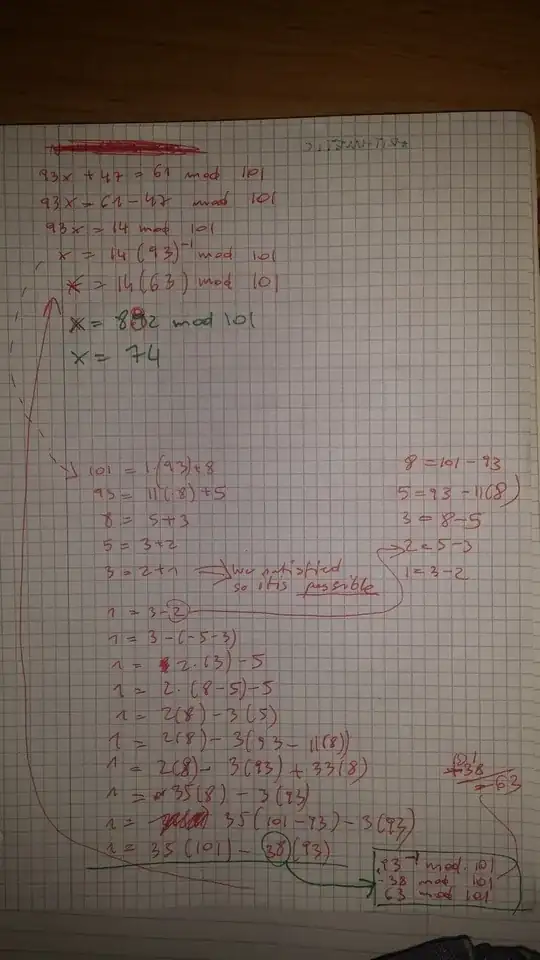 93x + 47 = 61 mod 101
93x = 61 - 47 mod 101
93x = 14 mod 101
x = 14 (93)⁻¹ mod 101
x = 14 (63) mod 101
x = 882 mod 101
x = 74
101 = 1·(93)+8
93 = 11(8)+5
8 = 5+3
5 = 3+2
3 = 2+1 ⇒ we satisfied
so it is possible
8 = 101 - 93
5 = 93 - 11(8)
3 = 8-5
2 = 5-3
1 = 3-2
1 = 3-2
1 = 3-(-5-3)
1 = 2·(3) - 5
1 = 2·(8-5)-5
1 = 2(8) - 3(5)
1 = 2(8) - 3(93 - 11(8))
1 = 2(8) - 3(93) + 33(8)
1 = 35(8) - 3(93)
1 = 35(101-93) - 3(93)
1 = 35(101) - 38(93)
101
-38
= 63
93⁻¹ mod 101
-38 mod 101
63 mod 101